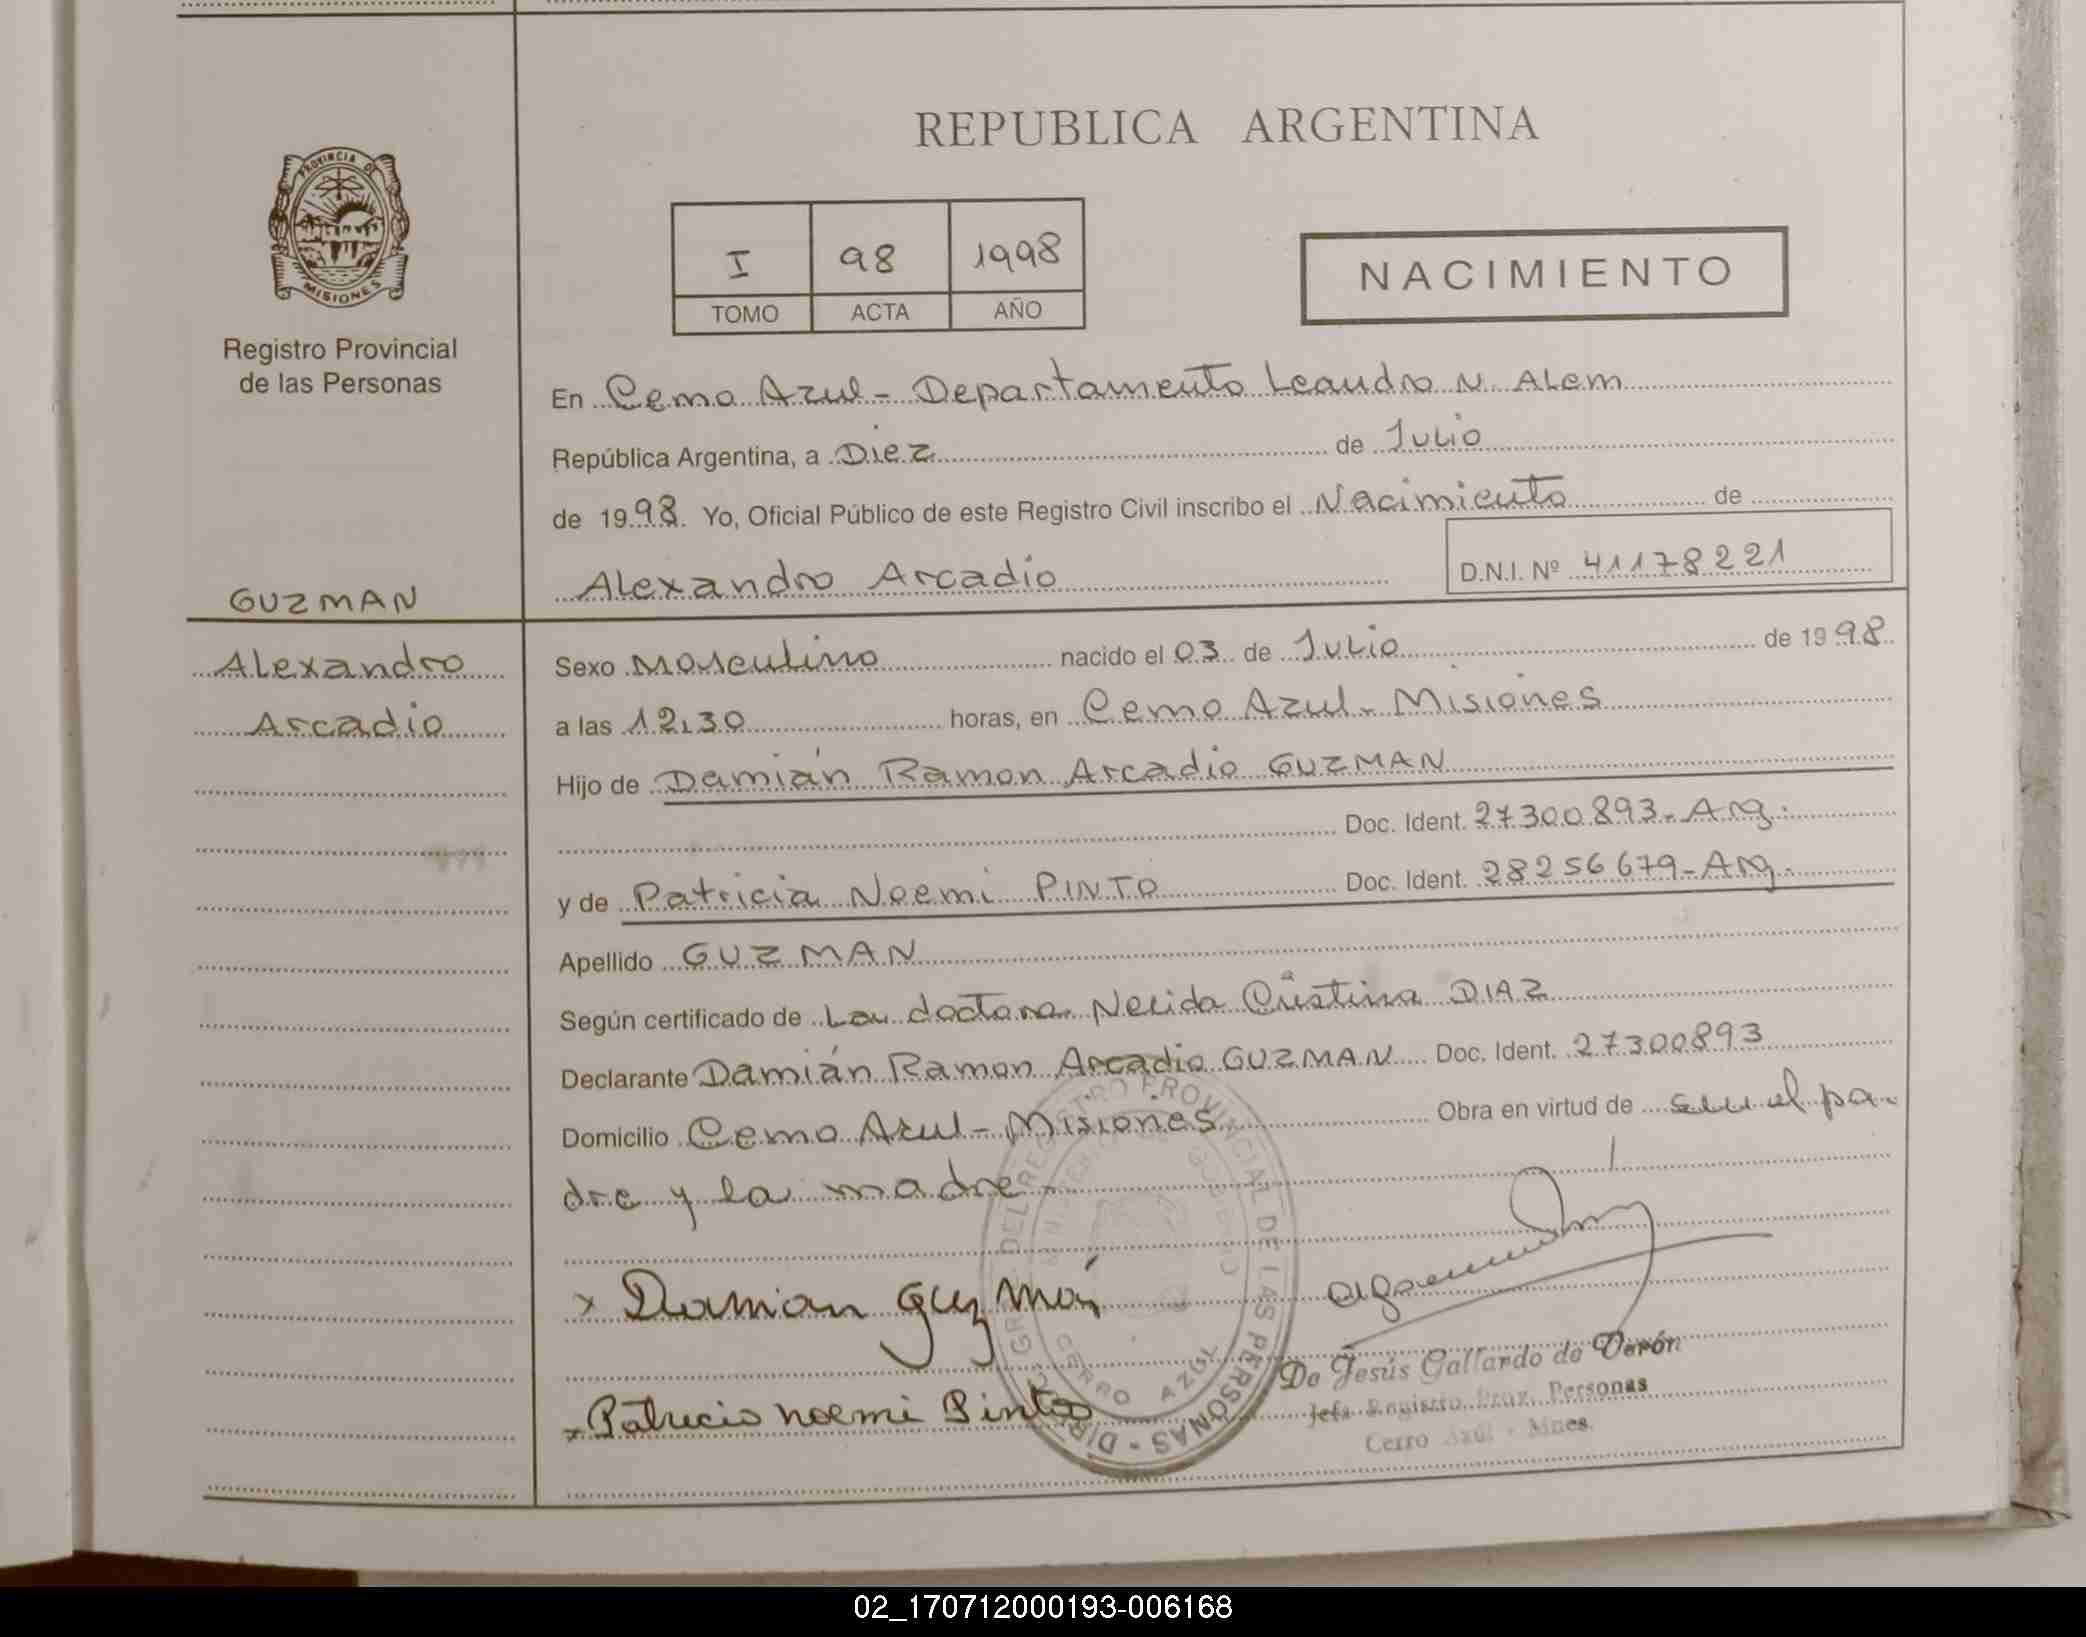 REPUBLICA ARGENTINA
PROVINCIA DE
MISIONES
I 98 1998
TOMO ACTA AÑO
NACIMIENTO
Registro Provincial
de las Personas
En Cerro Azul - Departamento Leandro N. Alem
República Argentina, a Diez de Julio
de 1998. Yo, Oficial Público de este Registro Civil inscribo el Nacimiento de
Alexandro Arcadio D.N.I. Nº 41178221
GUZMAN
Alexandro
Arcadio
Sexo Masculino nacido el 03 de Julio de 1998
a las 12,30 horas, en Cerro Azul - Misiones
Hijo de Damián Ramon Arcadio GUZMAN
Doc. Ident. 27300893-Arg.
y de Patricia Noemi PINTO Doc. Ident. 28256679-Arg.
Apellido GUZMAN
Según certificado de La doctora Nelida Cristina DIAZ
Declarante Damián Ramon Arcadio GUZMAN Doc. Ident. 27300893
Domicilio Cerro Azul - Misiones Obra en virtud de ser el pa-
dre y la madre
x Damian Guzmán
x Patricia Noemi Pinto
REGISTRO PROVINCIAL DE LAS PERSONAS
CERRO AZUL
De Jesús Gallardo de Verón
Jefe Registro Prov. Personas
Cerro Azul - Mnes.
02_170712000193-006168